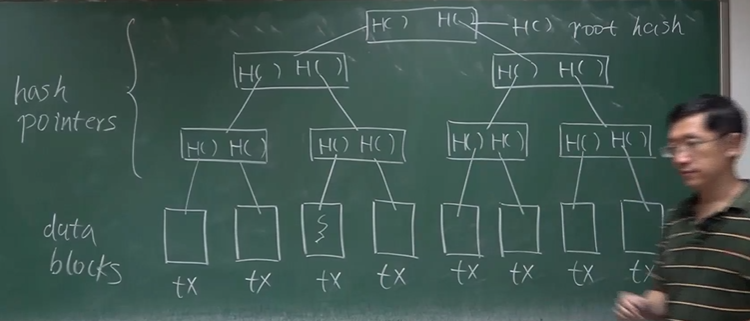 H() H() H() root hash
H() H() H() H()
hash
pointers
H() H() H() H() H() H() H() H()
data
blocks
tx tx tx tx tx tx tx tx